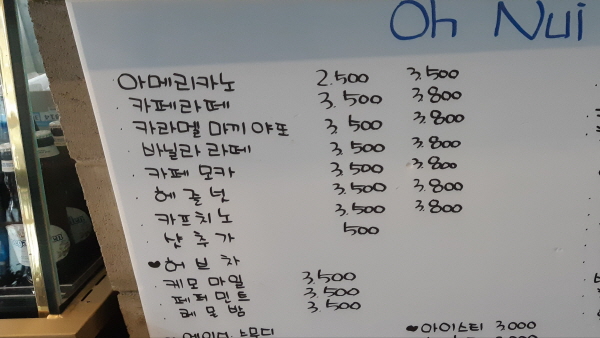 Oh Nui
아메리카노 2.500 3,500
· 카페라떼 3.500 3,800
· 카라멜 마끼야또 3,500 3,800
· 바닐라 라떼 3,500 3,800
· 카페 모카 3,500 3,800
· 헤즐넛 3,500 3,800
· 카프치노 3,500 3,800
· 샷 추가 500
♥허브차
케모마일 3,500
페퍼민트 3,500
레몬밤 3,500
♥아이스티 3.000